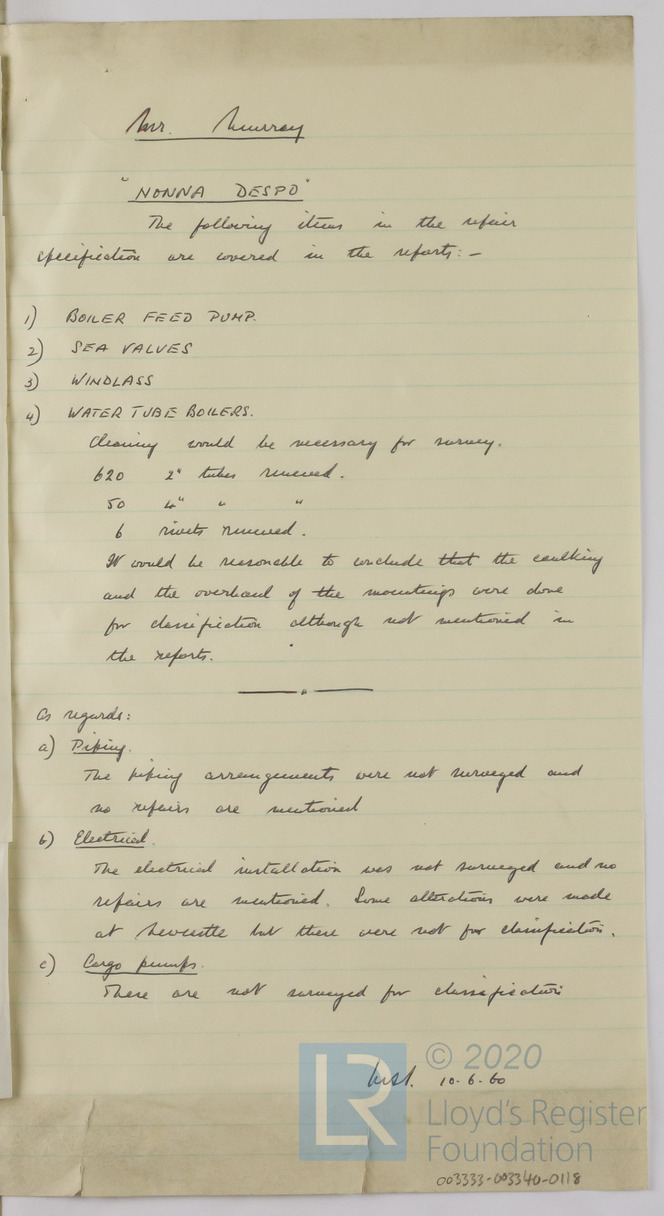 Mr. Murray
"NONNA DESPO"
The following items in the repair
specification are covered in the reports:-
1) BOILER FEED PUMP.
2) SEA VALVES
3) WINDLASS
4) WATER TUBE BOILERS.
Cleaning would be necessary for survey.
620 2" tubes renewed.
50 4" " "
6 rivets renewed.
It would be reasonable to conclude that the caulking
and the overhaul of the mountings were done
for classification although not mentioned in
the reports.
As regards:
a) Piping.
The piping arrangements were not surveyed and
no repairs are mentioned
b) Electrical.
The electrical installation was not surveyed and no
repairs are mentioned. Some alterations were made
at Newcastle but these were not for classification.
c) Cargo pumps.
These are not surveyed for classification
10.6.60
LR
© 2020
Lloyd's Register
Foundation
003333-003340-0118